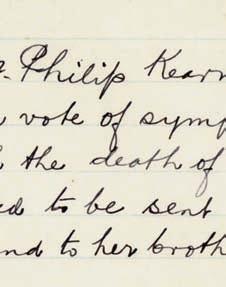 . Philip Kearn
vote of symp
the death of
ed to be sent
nd to her broth